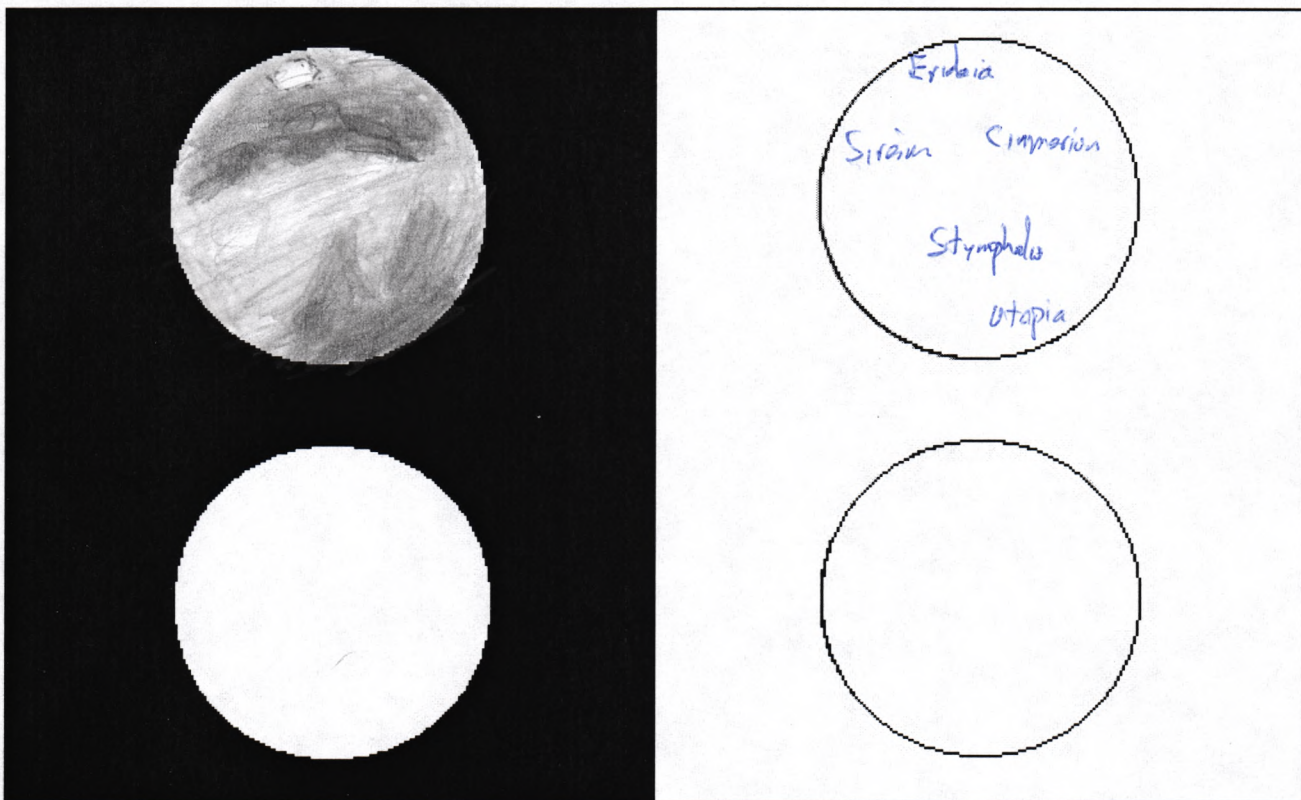 Eridania
Sirenum Cimmerium
Stymphalis
Utopia